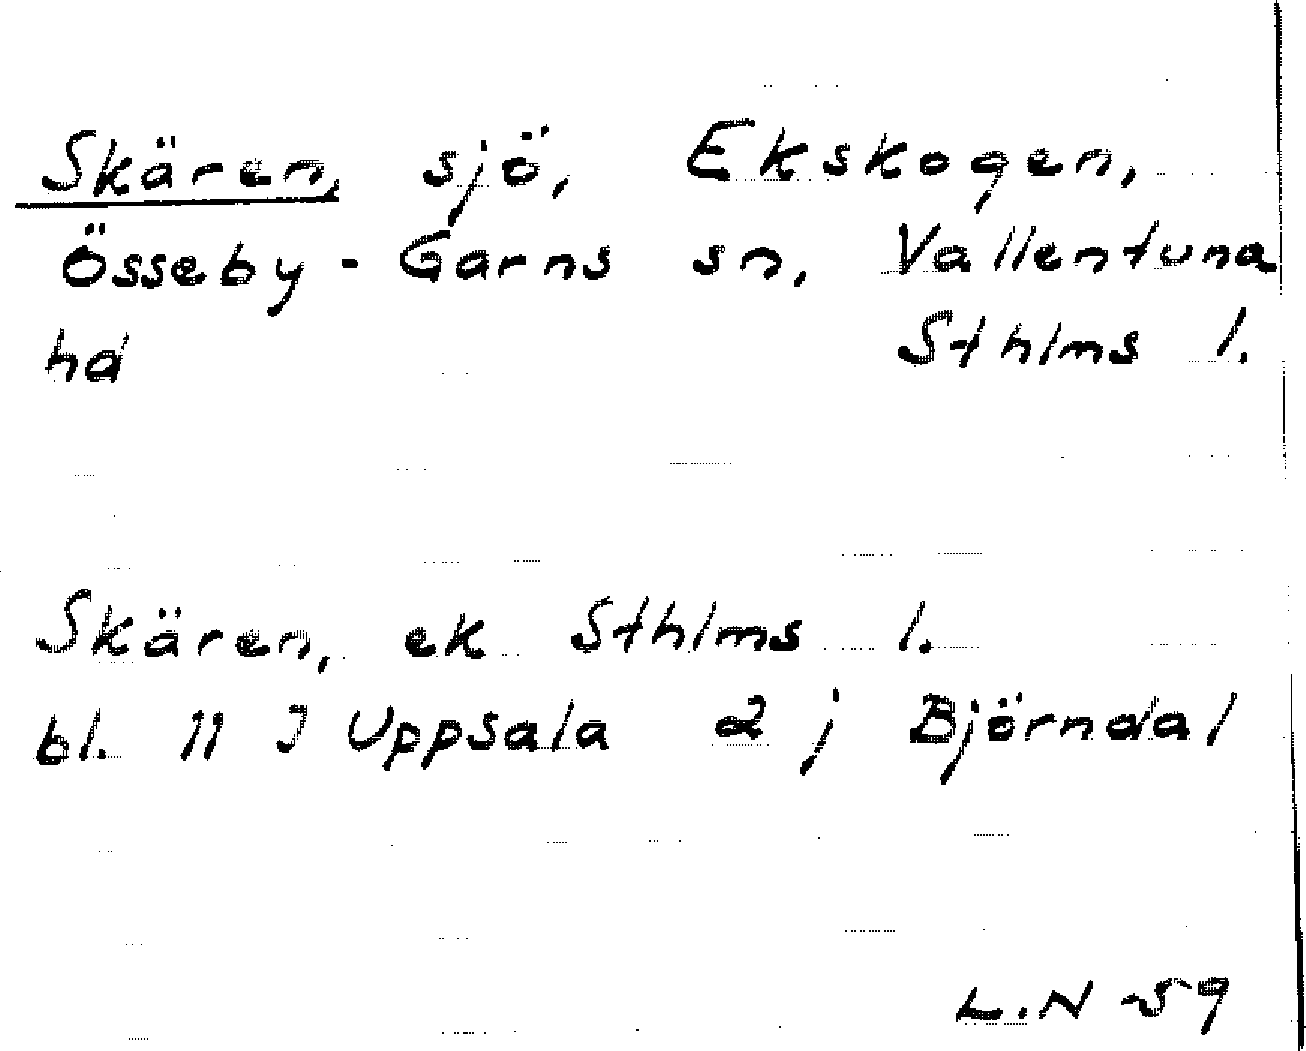 Skären, sjö, Ekskogen,
Össeby-Garns sn, Vallentuna
hd Sthlms l.
Skären, ek Sthlms l.
bl. 11 I Uppsala 2 j Björndal
L.N -59